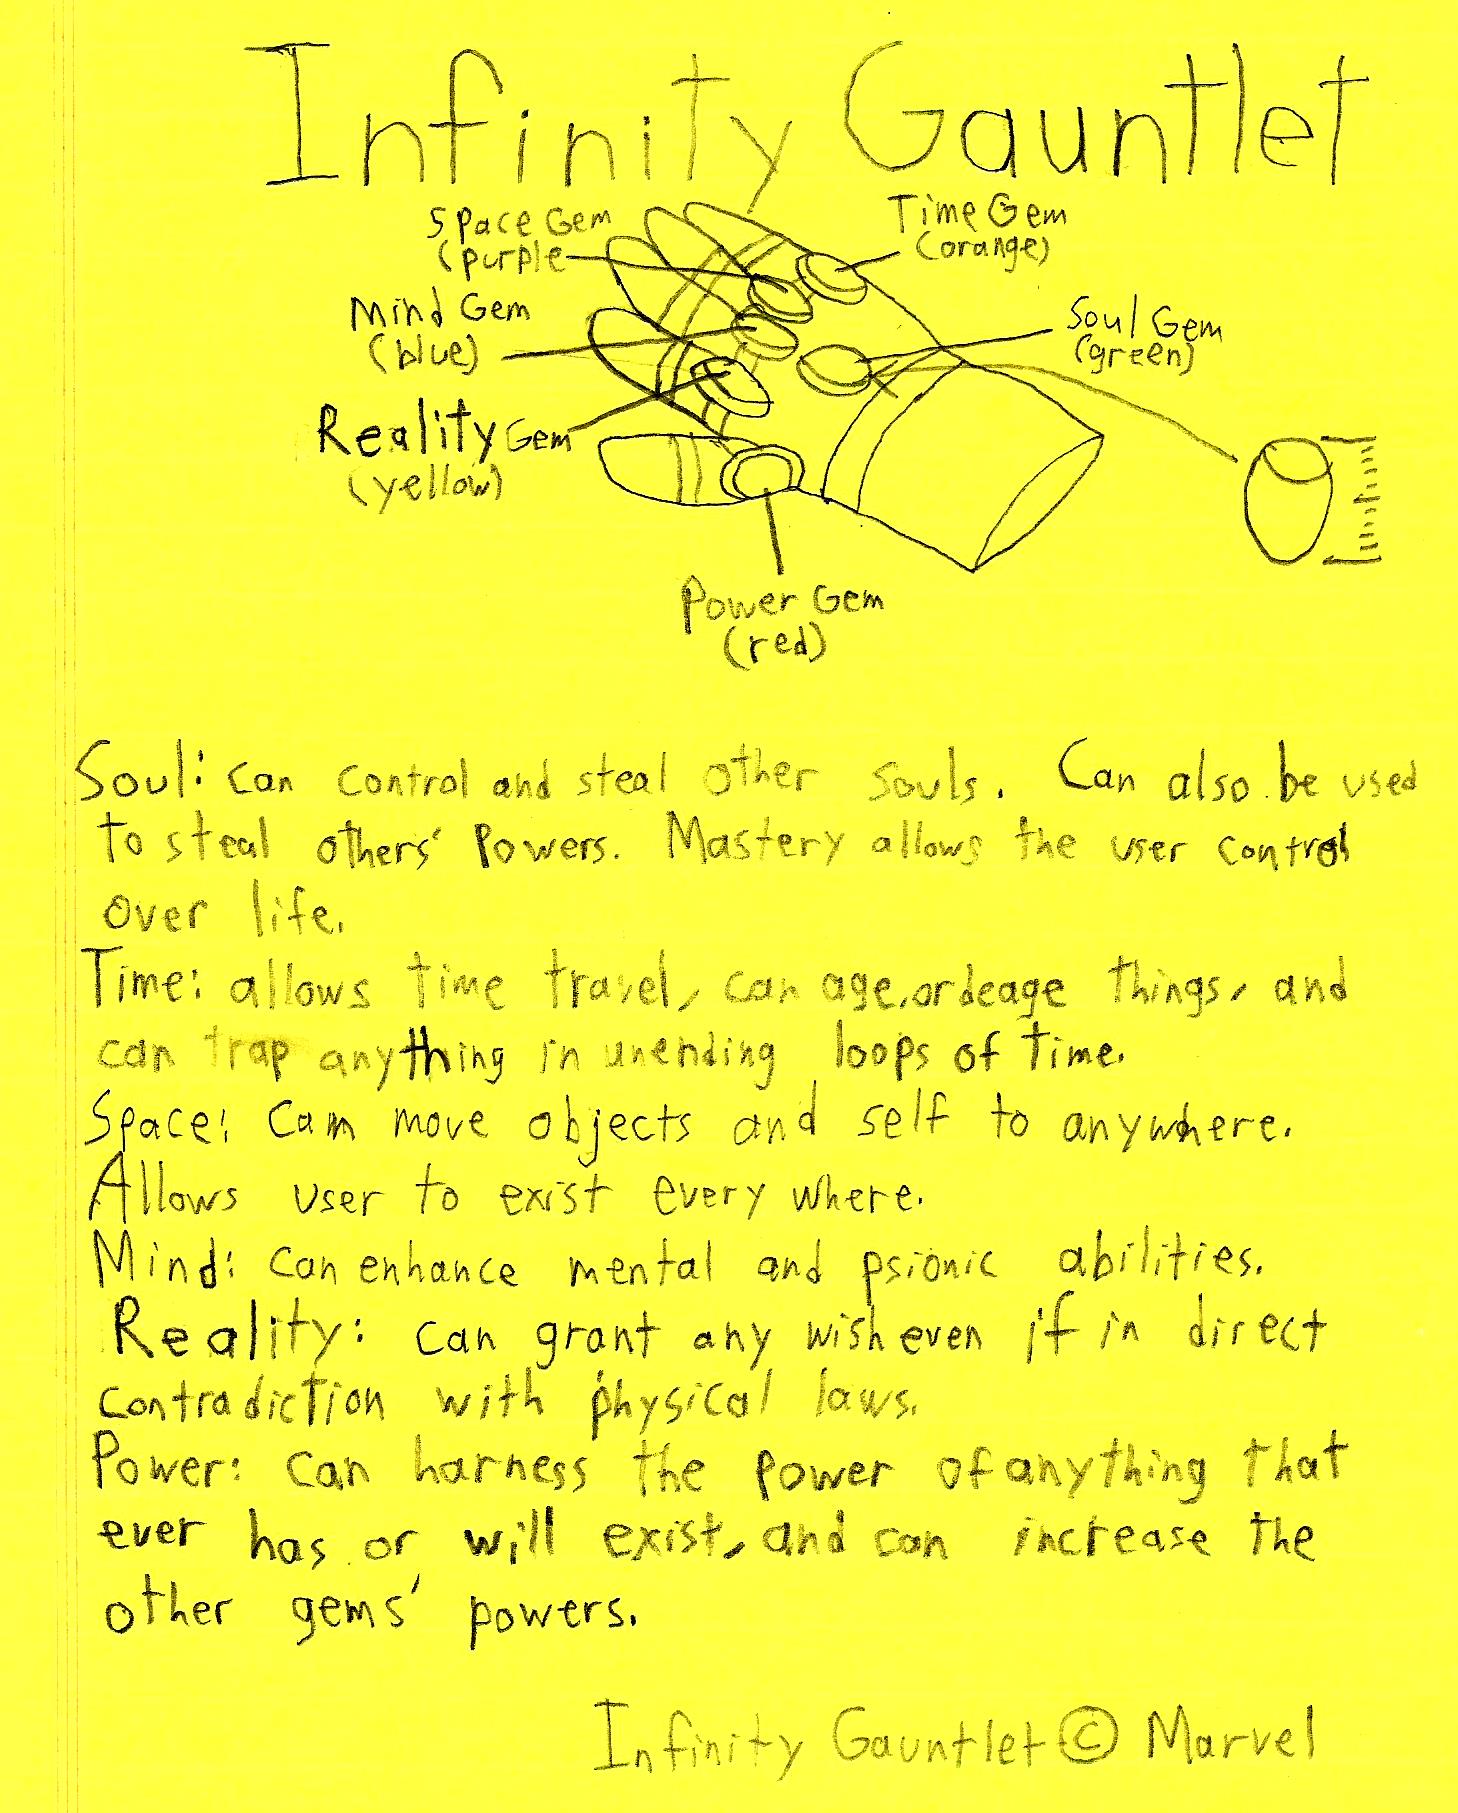 Infinity Gauntlet
Space Gem
(purple
Time Gem
(orange)
Mind Gem
(blue)
Soul Gem
(green)
Reality Gem
(yellow)
Power Gem
(red)
Soul: can control and steal other souls. Can also be used
to steal others' Powers. Mastery allows the user control
over life.
Time: allows time travel, can age, or deage things, and
can trap anything in unending loops of time.
Space: Can move objects and self to anywhere.
Allows user to exist every where.
Mind: can enhance mental and psionic abilities.
Reality: can grant any wish even if in direct
contradiction with physical laws.
Power: can harness the power of anything that
ever has or will exist, and can increase the
other gems' powers.
Infinity Gauntlet © Marvel